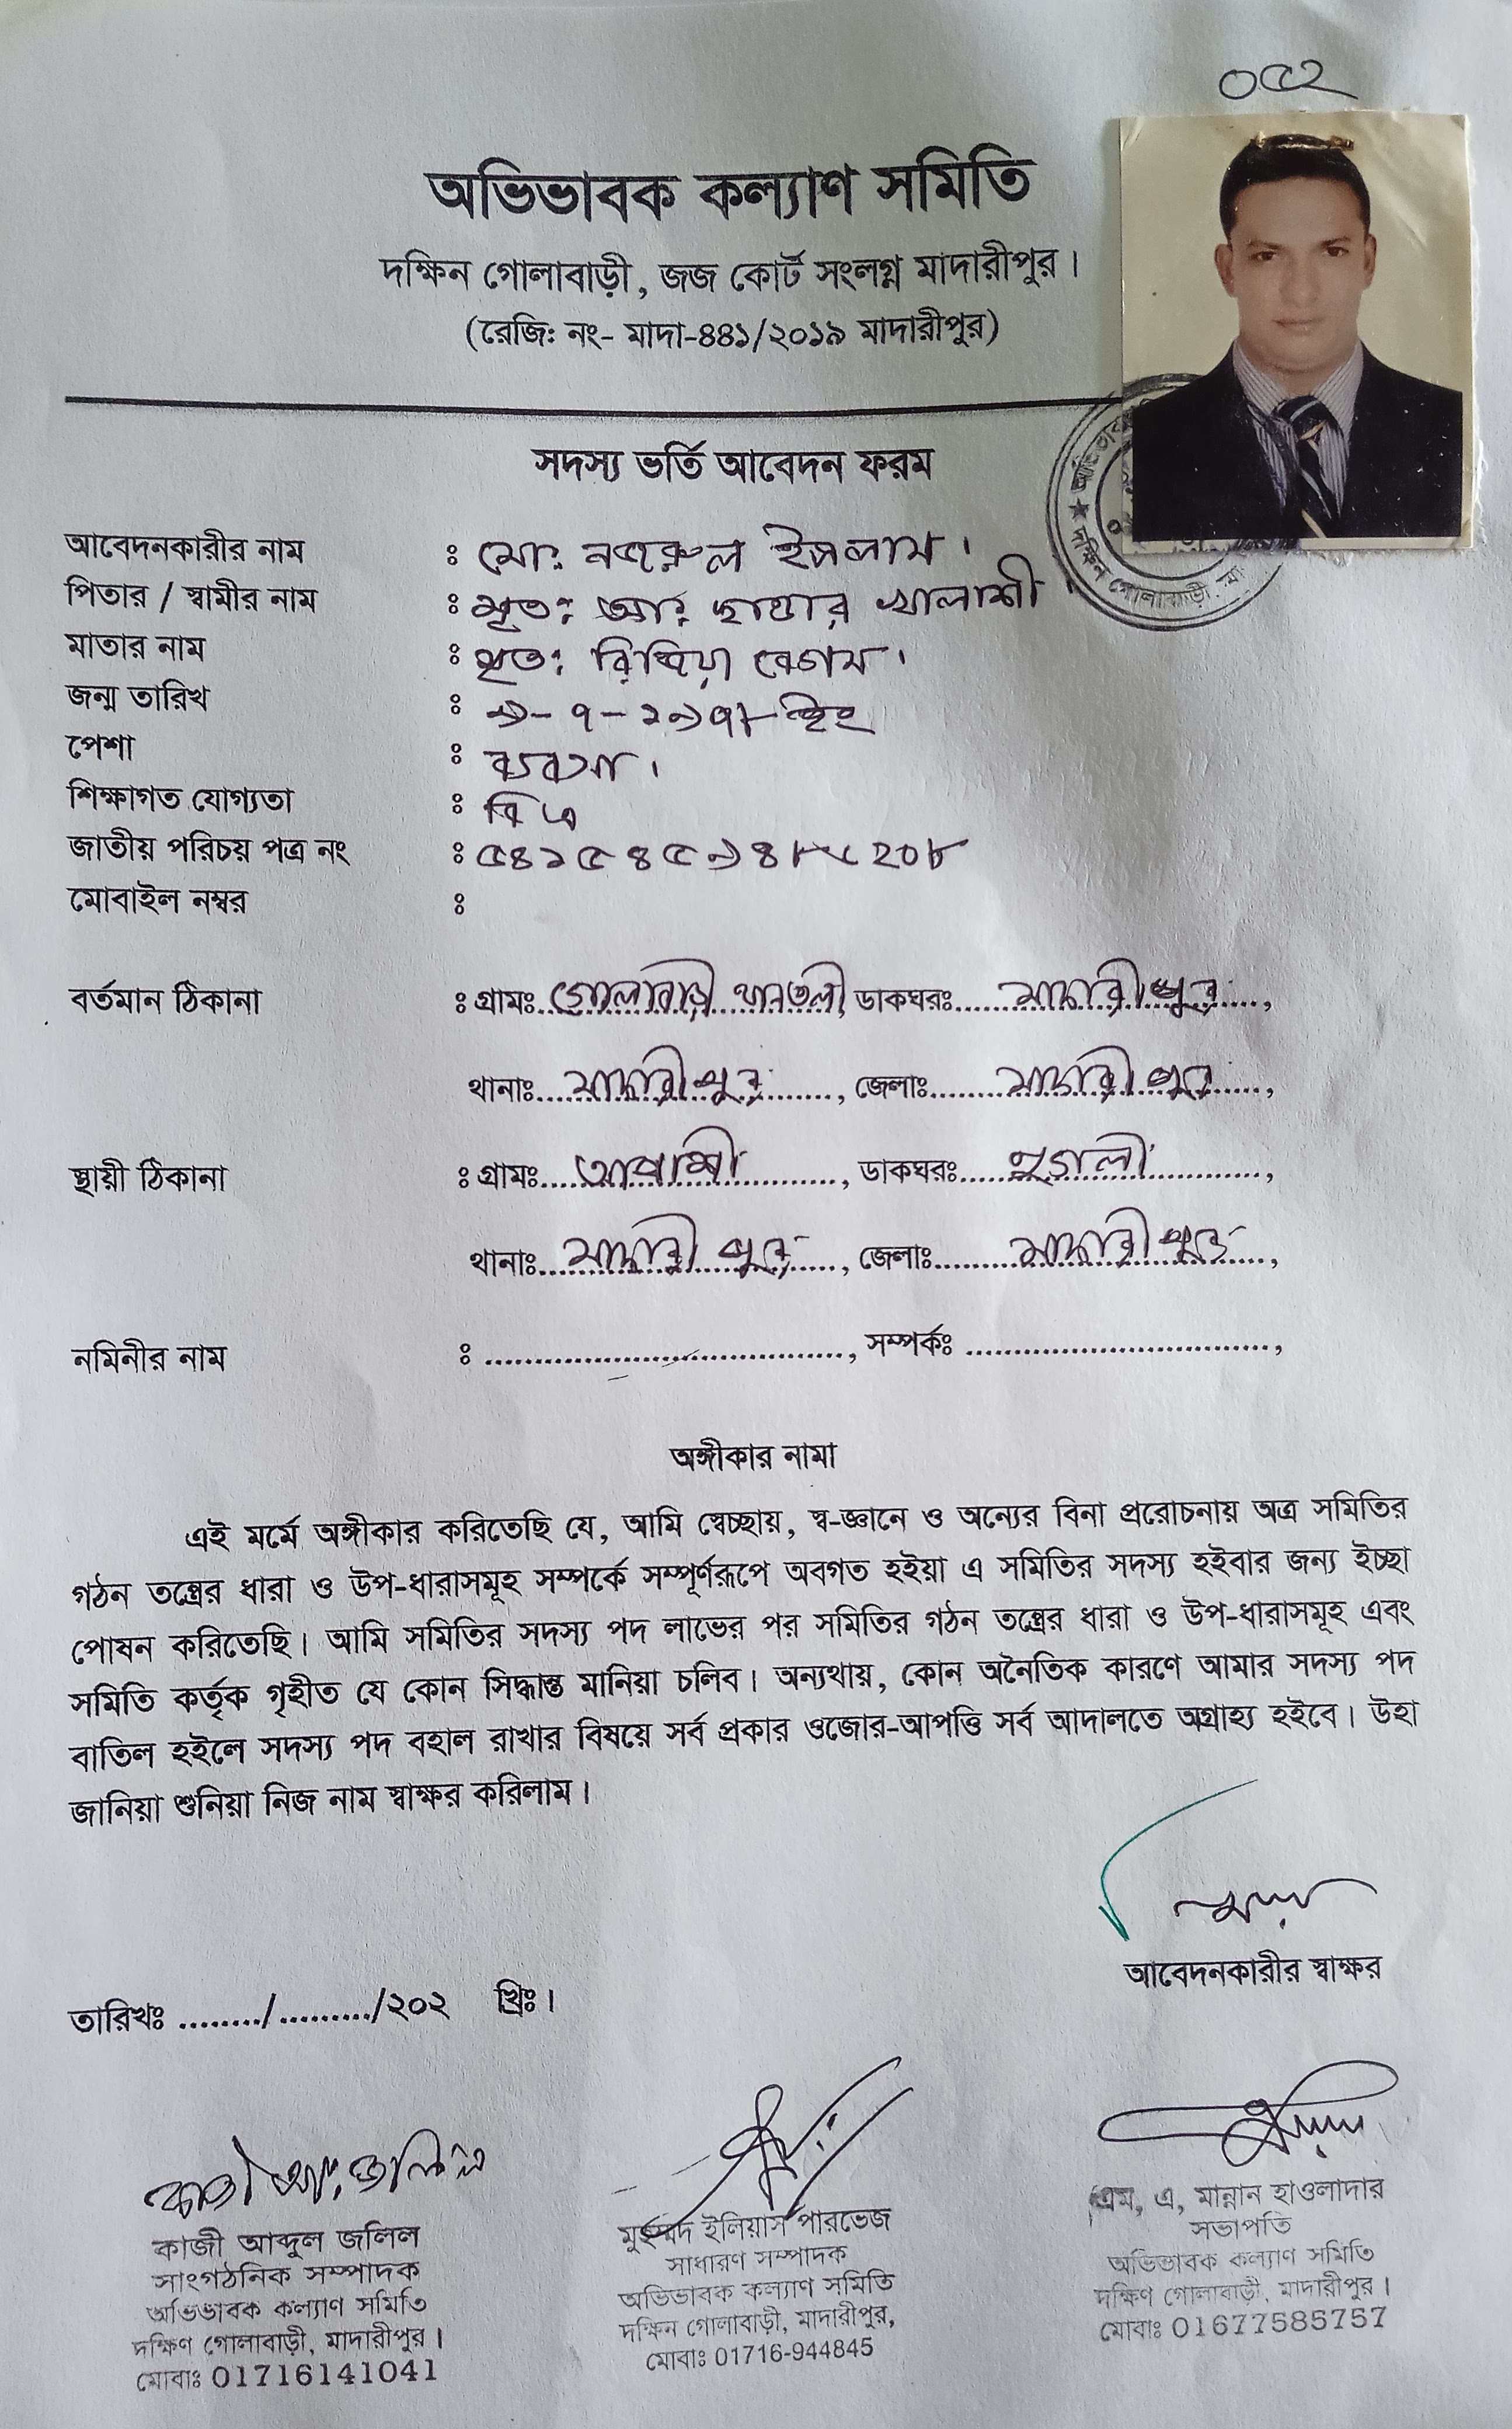 ০৫২
অভিভাবক কল্যাণ সমিতি
দক্ষিন গোলাবাড়ী, জজ কোর্ট সংলগ্ন মাদারীপুর।
(রেজিঃ নং- মাদা-৪৪১/২০১৯ মাদারীপুর)
সদস্য ভর্তি আবেদন ফরম
আবেদনকারীর নাম : মো: নজরুল ইসলাম।
পিতার / স্বামীর নাম : মৃত: আ: ছাত্তার খালাশী
মাতার নাম : মৃত: রিজিয়া বেগম।
জন্ম তারিখ : ৯-৭-১৯৭৮ ইং
পেশা : ব্যবসা।
শিক্ষাগত যোগ্যতা : বি এ
জাতীয় পরিচয় পত্র নং :
মোবাইল নম্বর :
বর্তমান ঠিকানা : গ্রামঃ গোলাবাড়ী থানতলী, ডাকঘরঃ মাদারীপুর,
থানাঃ মাদারীপুর, জেলাঃ মাদারীপুর,
স্থায়ী ঠিকানা : গ্রামঃ ডাকঘরঃ
থানাঃ মাদারীপুর, জেলাঃ মাদারীপুর,
নমিনীর নাম : ...................................., সম্পর্কঃ ................................,
অঙ্গীকার নামা
এই মর্মে অঙ্গীকার করিতেছি যে, আমি স্বেচ্ছায়, স্ব-জ্ঞানে ও অন্যের বিনা প্ররোচনায় অত্র সমিতির
গঠন তন্ত্রের ধারা ও উপ-ধারাসমূহ সম্পর্কে সম্পূর্ণরূপে অবগত হইয়া এ সমিতির সদস্য হইবার জন্য ইচ্ছা
পোষন করিতেছি। আমি সমিতির সদস্য পদ লাভের পর সমিতির গঠন তন্ত্রের ধারা ও উপ-ধারাসমূহ এবং
সমিতি কর্তৃক গৃহীত যে কোন সিদ্ধান্ত মানিয়া চলিব। অন্যথায়, কোন অনৈতিক কারণে আমার সদস্য পদ
বাতিল হইলে সদস্য পদ বহাল রাখার বিষয়ে সর্ব প্রকার ওজোর-আপত্তি সর্ব আদালতে অগ্রাহ্য হইবে। উহা
জানিয়া শুনিয়া নিজ নাম স্বাক্ষর করিলাম।
আবেদনকারীর স্বাক্ষর
তারিখঃ ......../........./২০২ খ্রিঃ।
কাজী আঃ জলিল
কাজী আব্দুল জলিল
সাংগঠনিক সম্পাদক
অভিভাবক কল্যাণ সমিতি
দক্ষিণ গোলাবাড়ী, মাদারীপুর।
মোবাঃ 01716141041
মুহম্মদ ইলিয়াস পারভেজ
সাধারণ সম্পাদক
অভিভাবক কল্যাণ সমিতি
দক্ষিন গোলাবাড়ী, মাদারীপুর,
মোবাঃ 01716-944845
এম, এ, মান্নান হাওলাদার
সভাপতি
অভিভাবক কল্যাণ সমিতি
দক্ষিণ গোলাবাড়ী, মাদারীপুর।
মোবাঃ 01677585757